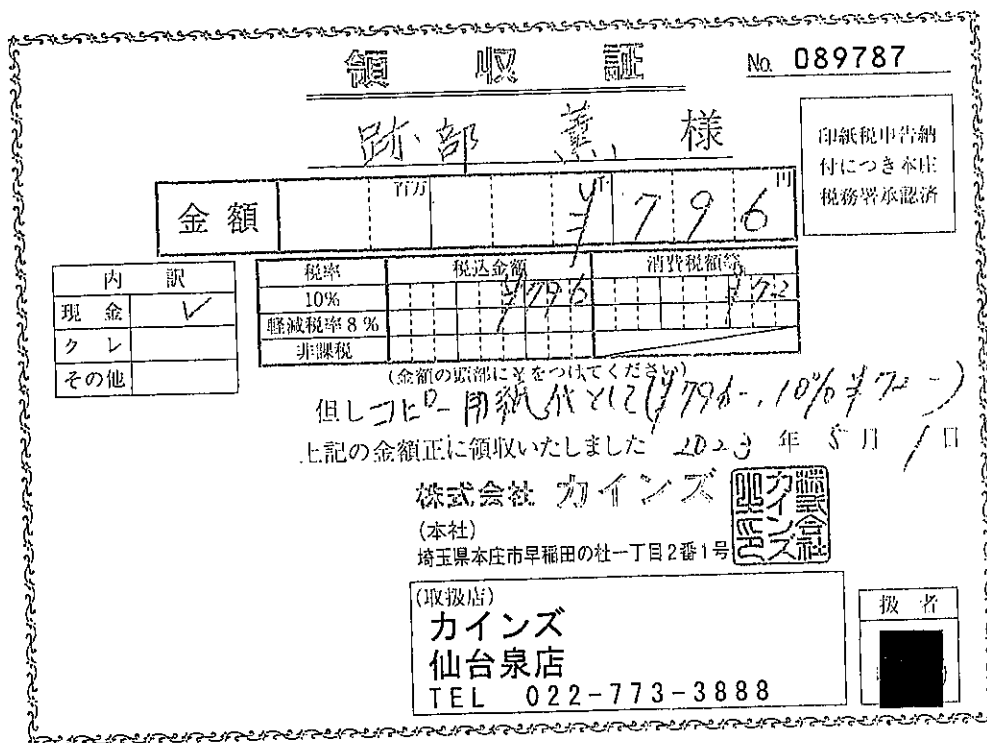 領収証
No. 089787
跡部 薫 様
印紙税申告納
付につき本庄
税務署承認済
金額 百万 千 円
¥796
内訳
現金 ✓
クレ
その他
税率 税込金額 消費税額等
10% ¥796 ¥72
軽減税率8%
非課税
(金額の頭部に¥をつけてください)
但しコピー用紙代として(¥796-、10% ¥72-)
上記の金額正に領収いたしました 2023年5月1日
株式会社 カインズ
(本社)
埼玉県本庄市早稲田の杜一丁目2番1号
株式会社
カインズ
(取扱店)
カインズ
仙台泉店
TEL 022-773-3888
扱者